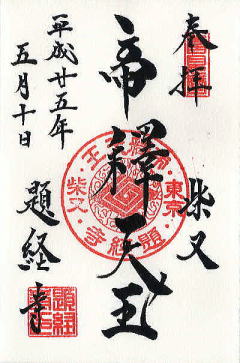 奉拝
柴又
帝釋天王
平成廿五年
五月十日
題経寺
東京
柴又
題経寺